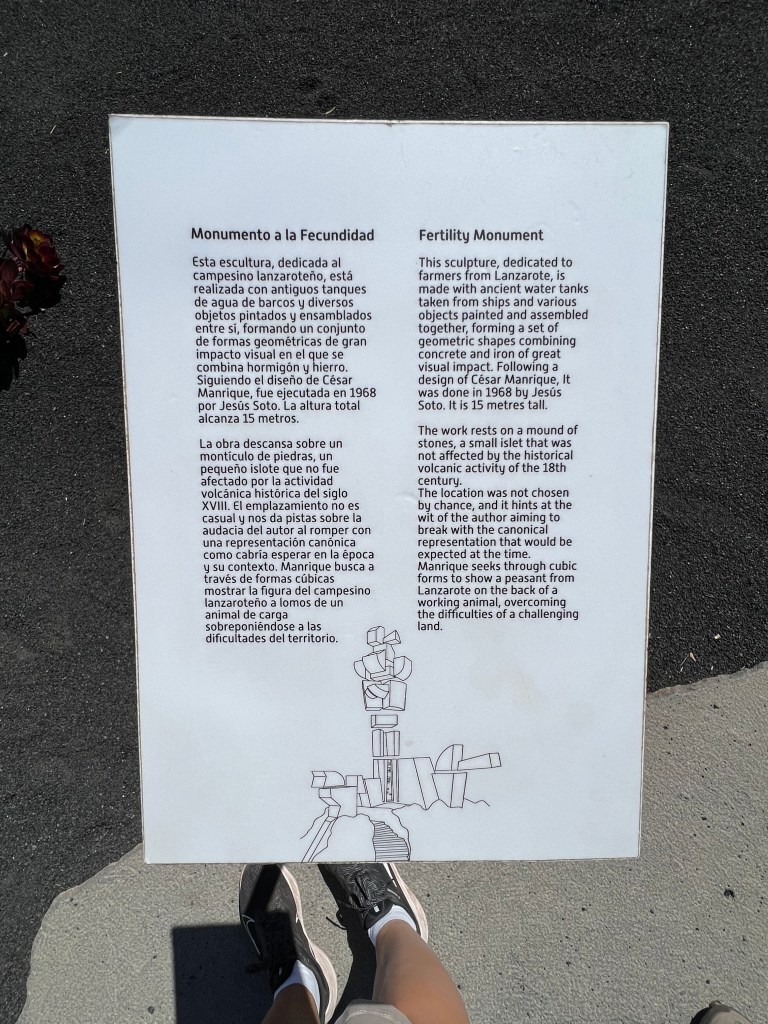 Monumento a la Fecundidad
Esta escultura, dedicada al
campesino lanzaroteño, está
realizada con antiguos tanques
de agua de barcos y diversos
objetos pintados y ensamblados
entre sí, formando un conjunto
de formas geométricas de gran
impacto visual en el que se
combina hormigón y hierro.
Siguiendo el diseño de César
Manrique, fue ejecutada en 1968
por Jesús Soto. La altura total
alcanza 15 metros.
La obra descansa sobre un
montículo de piedras, un
pequeño islote que no fue
afectado por la actividad
volcánica histórica del siglo
XVIII. El emplazamiento no es
casual y nos da pistas sobre la
audacia del autor al romper con
una representación canónica
como cabría esperar en la época
y su contexto. Manrique busca a
través de formas cúbicas
mostrar la figura del campesino
lanzaroteño a lomos de un
animal de carga
sobreponiéndose a las
dificultades del territorio.
Fertility Monument
This sculpture, dedicated to
farmers from Lanzarote, is
made with ancient water tanks
taken from ships and various
objects painted and assembled
together, forming a set of
geometric shapes combining
concrete and iron of great
visual impact. Following a
design of César Manrique, It
was done in 1968 by Jesús
Soto. It is 15 metres tall.
The work rests on a mound of
stones, a small islet that was
not affected by the historical
volcanic activity of the 18th
century.
The location was not chosen
by chance, and it hints at the
wit of the author aiming to
break with the canonical
representation that would be
expected at the time.
Manrique seeks through cubic
forms to show a peasant from
Lanzarote on the back of a
working animal, overcoming
the difficulties of a challenging
land.